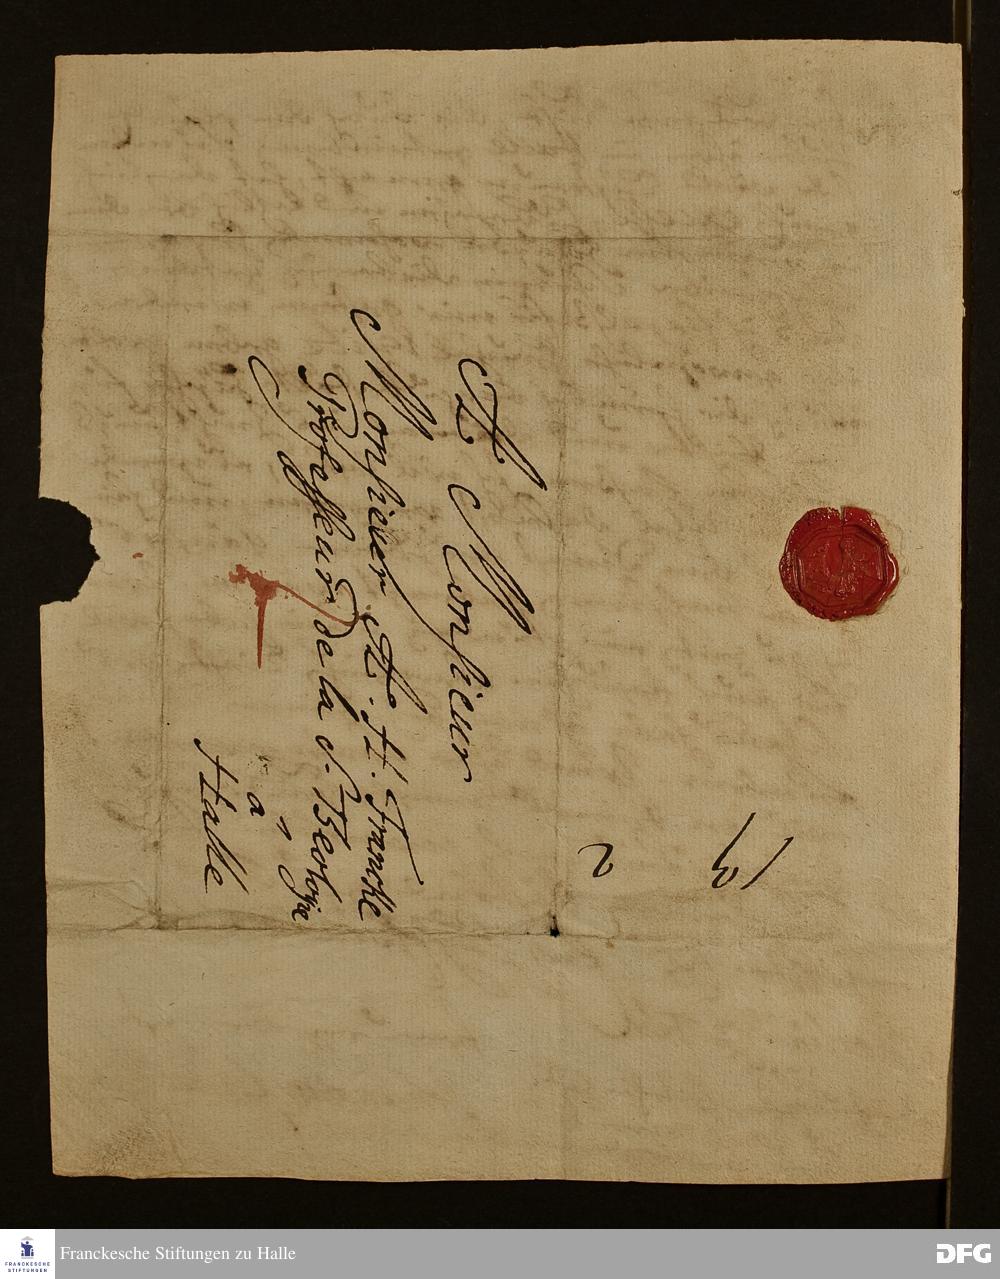 A Monsieur
Monsieur A. H. Francke
Professeur de la S. Theologie
â
Halle
2
13
FRANCKESCHE
STIFTUNGEN
Franckesche Stiftungen zu Halle
DFG